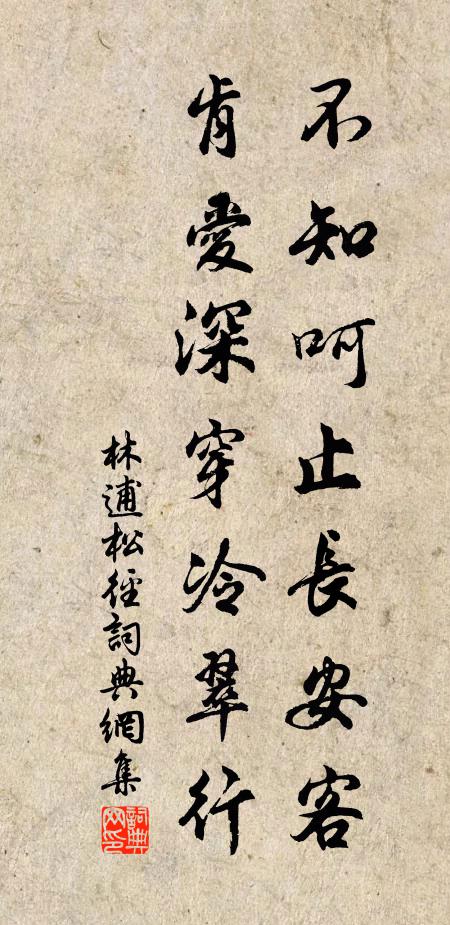 不知呵止長安客
肯愛深穿冷翠行
林逋松徑詞典網集
詞典網印